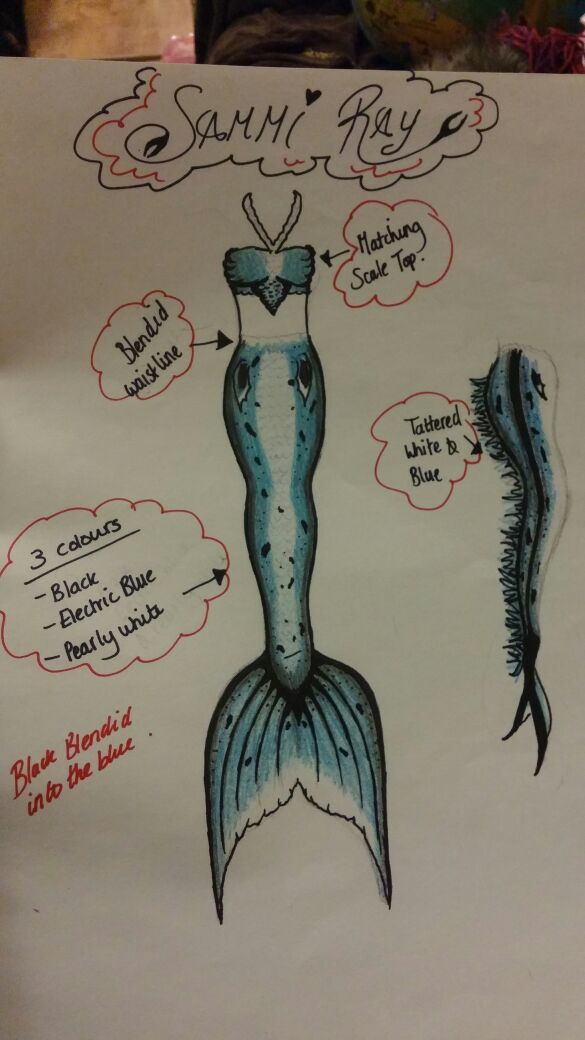 SAMMI RAY
Matching
Scale Top.
Blendid
waistline
Tattered
white &
Blue
3 colours
- Black
- Electric Blue
- Pearly white
Black Blendid
into the blue.